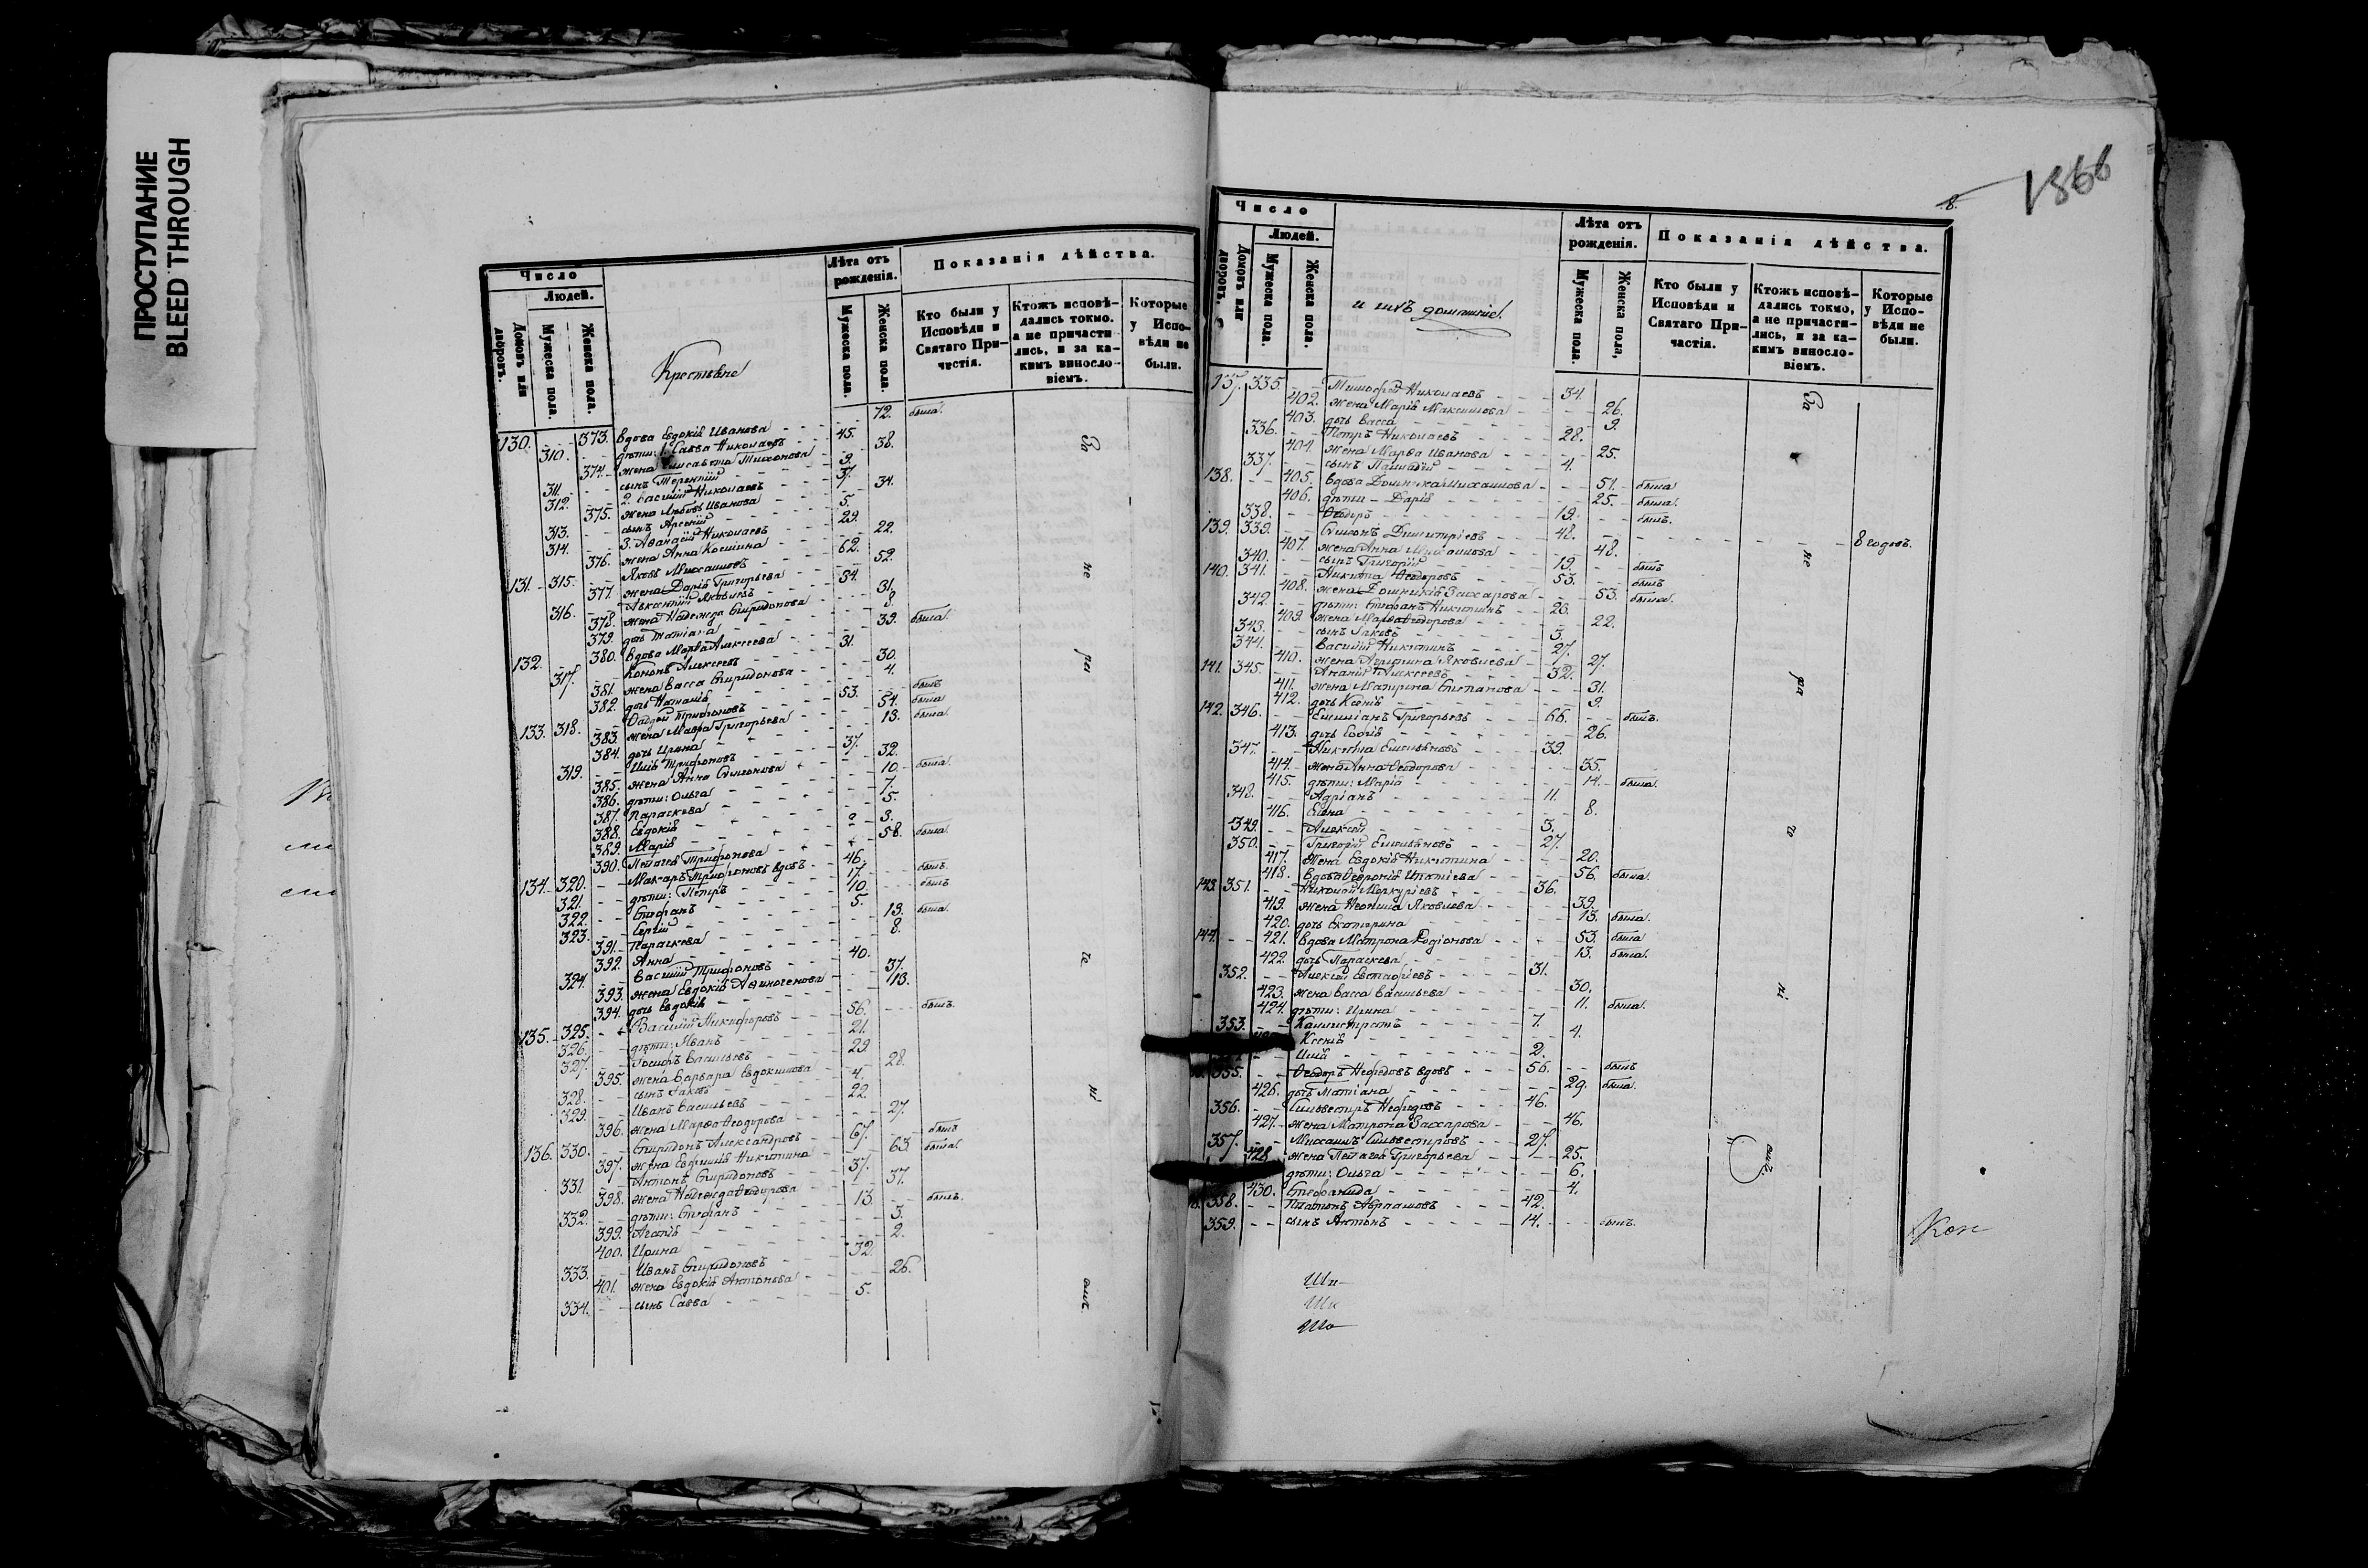 ПРОСТУПАНИЕ
BLEED THROUGH
Число
Людей.
Домовъ или дворовъ.
Мужеска пола.
Женска пола.
Крестьяне
Лѣта отъ рожденія.
Мужеска пола.
Женска пола.
Показанія дѣйства.
Кто были у Исповѣди и Святаго При-частія.
Ктожъ исповѣ-дались токмо. а не причасти-лись, и за ка-кимъ виносло-віемъ.
Которые у Испо-вѣди не были.
130. 373. Вдова Евдокія Иванова 72. была.
310. дѣти: 1. Савва Николаевъ 45.
374. жена Елисавета Тихонова 38.
311. сынъ Терентій 9.
312. 2. Василій Николаевъ 37.
375. жена Любовь Иванова 34.
313. сынъ Арсеній 5.
314. 3. Аѳанасій Николаевъ 29.
376. жена Анна Косьмина 22.
131. 315. Яковъ Михаиловъ 62.
377. жена Дарія Григорьева 52.
316. Авксентій Яковлевъ 34.
378. жена Надежда Спиридонова 31.
379. дочь Татіана 8.
132. 380. Вдова Марѳа Алексеева 39. была.
317. Кононъ Алексеевъ 31.
381. жена Васса Спиридонова 30.
382. дочь Наталія 4.
133. 318. Ѳаддей Трифоновъ 53. былъ
383. жена Мавра Григорьева 54. была
384. дочь Ирина 13. была.
319. Илія Трифоновъ 37.
385. жена Анна Симеонова 32.
386. дѣти: Ольга 10. была.
387. Параскева 7.
388. Евдокія 5.
389. Марія 3.
390. Пелагея Трифонова 58. была.
134. 320. Макаръ Трифоновъ вдовъ 46. былъ.
321. дѣти: Петръ 17. былъ
322. Стефанъ 10.
323. Сергій 5.
391. Параскева 13. была.
392. Анна 8.
324. Василій Трифоновъ 40.
393. жена Евдокія Аѳиногенова 37.
394. дочь Евдокія 13.
135. 325. Василій Никифоровъ 56. былъ.
326. дѣти: Иванъ 21.
327. Іосифъ Васильевъ 29.
395. жена Варвара Евдокимова 28.
328. сынъ Іаковъ 4.
329. Иванъ Васильевъ 22.
396. жена Марѳа Ѳеодорова 27.
136. 330. Спиридонъ Александровъ 67. былъ
397. жена Евфимія Никитина 63. была.
331. Антонъ Спиридоновъ 37.
398. жена Надежда Ѳеодорова 37.
332. дѣти: Стефанъ 13. былъ.
399. Агапія 5.
400. Ирина 2.
333. Иванъ Спиридоновъ 32.
401. жена Евдокія Антонова 26.
334. сынъ Савва 5.
За
не
ра
че
ні
емъ.
8.
1866
Число
Людей.
Домовъ или дворовъ.
Мужеска пола.
Женска пола.
и ихъ домашніе.
Лѣта отъ рожденія.
Мужеска пола.
Женска пола,
Показанія дѣйства.
Кто были у Исповѣди и Святаго При-частія.
Ктожъ исповѣ-дались токмо, а не причасти-лись, и за ка-кимъ виносло-віемъ.
Которые у Испо-вѣди не были.
137. 335. Тимофей Николаевъ 34.
402. жена Марія Максимова 26.
403. дочь Васса 9.
336. Петръ Николаевъ 28.
404. жена Марѳа Иванова 25.
337. сынъ 4.
138. 405. Вдова Домника Михаилова 51. была
406. дѣти Дарія 25. была.
338. Ѳеодоръ 19. былъ.
139. 339. Симеонъ Димитріевъ 48. 8 годовъ.
407. жена Анна Михаилова 48.
340. сынъ Григорій 19. былъ
140. 341. Никита Ѳеодоровъ 53. былъ
408. жена Домникія Захарова 53. была.
342. дѣти: Стефанъ Никитинъ 23.
409. жена Марѳа Ѳеодорова 22.
343. сынъ Іаковъ 3.
344. Василій Никитинъ 27.
410. жена Агрипина Яковлева 27.
141. 345. Ананій Алексеевъ 32.
411. жена Матрона Степанова 31.
412. дочь Ксенія 9.
142. 346. Емиліанъ Григорьевъ 66. былъ.
413. дочь Софія 26.
347. Никита Емельяновъ 39.
414. жена Анна Ѳеодорова 35.
415. дѣти: Марія 14. была.
348. Адріанъ 11.
416. Елена 8.
349. Алексій 3.
350. Григорій Емельяновъ 27.
417. жена Евдокія Никитина 20.
418. Вдова Ѳевронія Ипатіева 56. была.
143. 351. Николай Меркуріевъ 36.
419. жена Неонила Яковлева 39.
420. дочь Екатерина 13. была.
144. 421. Вдова Матрона Родіонова 53. была
422. дочь Параскева 13. была.
352. Алексій Евстафіевъ 31.
423. жена Васса Васильева 30.
424. дѣти: Ирина 11. была.
353. Каллистратъ 7.
Ксенія 4.
Илія 2.
355. Ѳеодоръ Нефедовъ вдовъ 56. былъ
426. дочь Татіана 29. была.
356. Сильвестръ Нефедовъ 46.
427. жена Матрона Захарова 46.
357. Михаилъ Сильвестровъ 27.
428. жена Пелагея Григорьева 25.
дѣти: Ольга 6.
430. Стефанида 4.
358. Платонъ Абрамовъ 42.
359. сынъ Антонъ 14. былъ.
За
не
ра
че
ні
емъ.